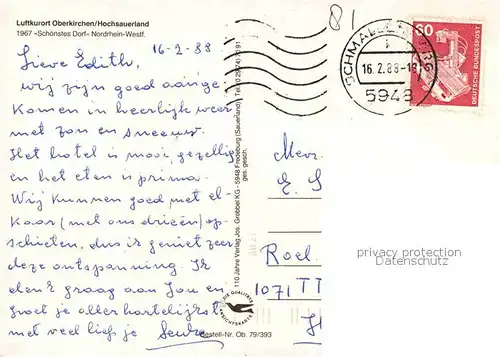 Luftkurort Oberkirchen/Hochsauerland
1967 »Schönstes Dorf« Nordrhein-Westf.
16-2-88
Lieve Edith,
wij zijn goed aange-
komen in heerlijk weer
met zon en sneeuw.
Het hotel is mooi, gezellig
en het eten is prima.
Wij kunnen goed met el-
kaar (met ons drieën) op-
schieten, dus ik geniet zeer
deze ontspanning. Ik
denk graag aan jou en
groet je aller hartelijkst
met veel liefs je
110 Jahre Verlag Jos. Grobbel KG · 5948 Fredeburg (Sauerland) Tel.
ges. gesch.
DIE QUALITÄTS
ANSICHTSKARTE
Bestell-Nr. Ob. 79/393
81
SCHMALLENBERG
16.2.88-18
5948
60
DEUTSCHE BUNDESPOST
Mevr.
E. S
Roel
1071 TT
privacy protection
Datenschutz